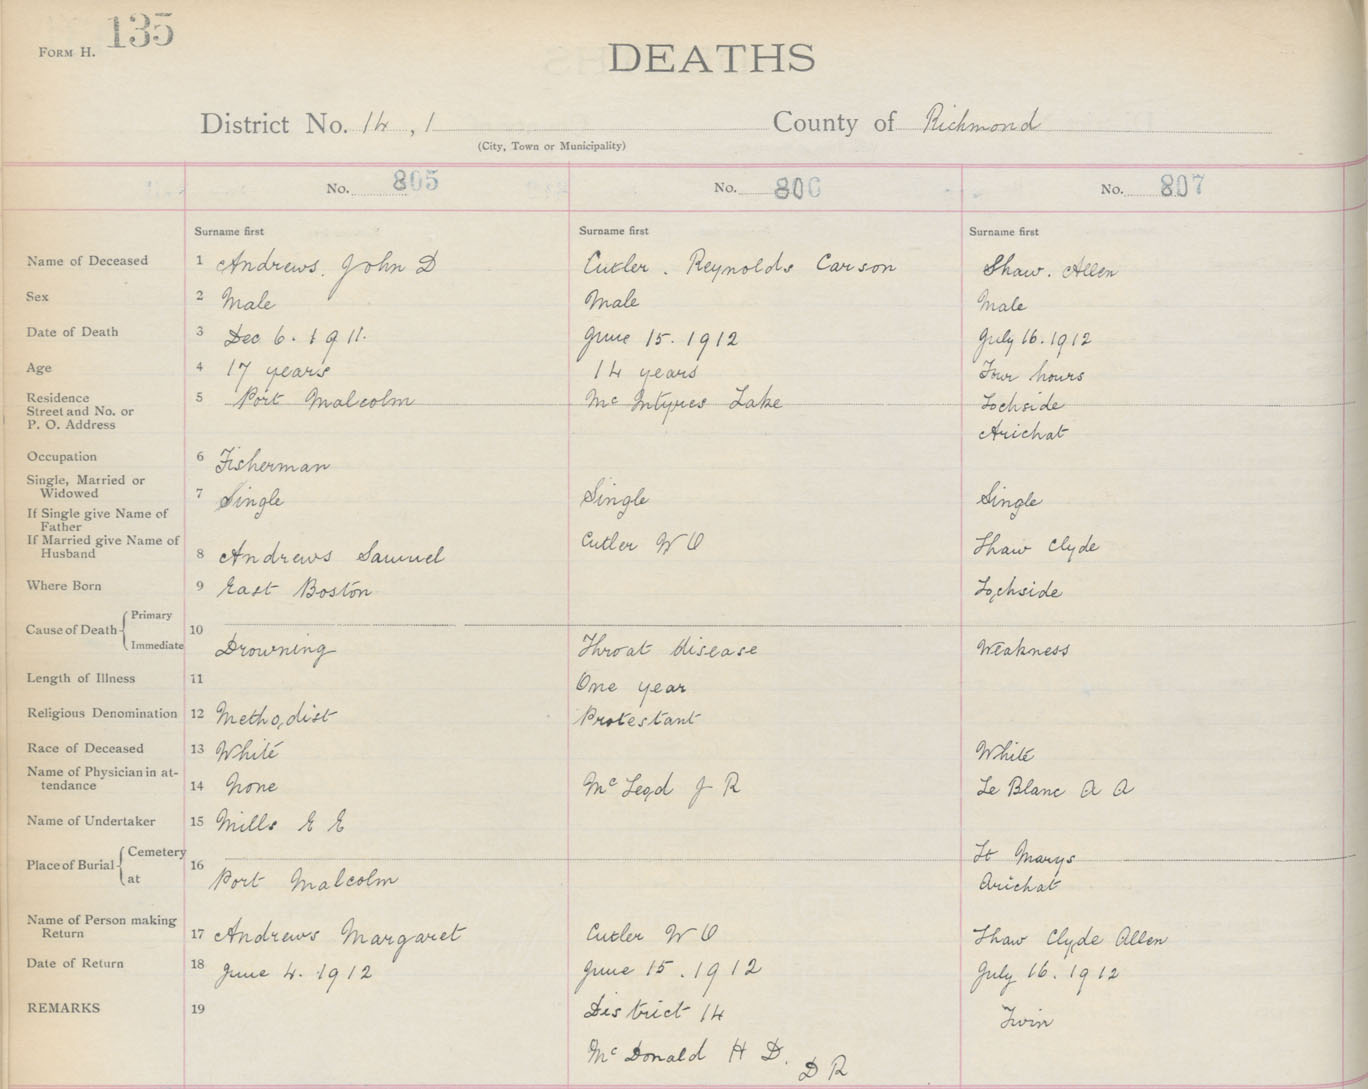 FORM H. 135
DEATHS
District No. 14, 1 County of Richmond
(City, Town or Municipality)
No. 805 No. 806 No. 807
Surname first Surname first Surname first
Name of Deceased 1 Andrews. John D Cutler. Reynolds Carson Shaw. Allen
Sex 2 Male Male Male
Date of Death 3 Dec 6. 1911. June 15. 1912 July 16. 1912
Age 4 17 years 14 years Four hours
Residence 5 Port Malcolm Mc Intyres Lake Lochside
Street and No. or
P. O. Address Arichat
Occupation 6 Fisherman
Single, Married or
Widowed 7 Single Single Single
If Single give Name of
Father
If Married give Name of
Husband 8 Andrews Samuel Cutler W O Shaw Clyde
Where Born 9 East Boston Lochside
Cause of Death Primary 10
Immediate Drowning Throat disease Weakness
Length of Illness 11 One year
Religious Denomination 12 Methodist Protestant
Race of Deceased 13 White White
Name of Physician in at-
tendance 14 None Mc Leod J R Le Blanc A A
Name of Undertaker 15 Mills E E
Place of Burial Cemetery 16 St Marys
at Port Malcolm Arichat
Name of Person making
Return 17 Andrews Margaret Cutler W O Shaw Clyde Allen
Date of Return 18 June 4. 1912 June 15. 1912 July 16. 1912
REMARKS 19 District 14 Twin
Mc Donald H D. D R